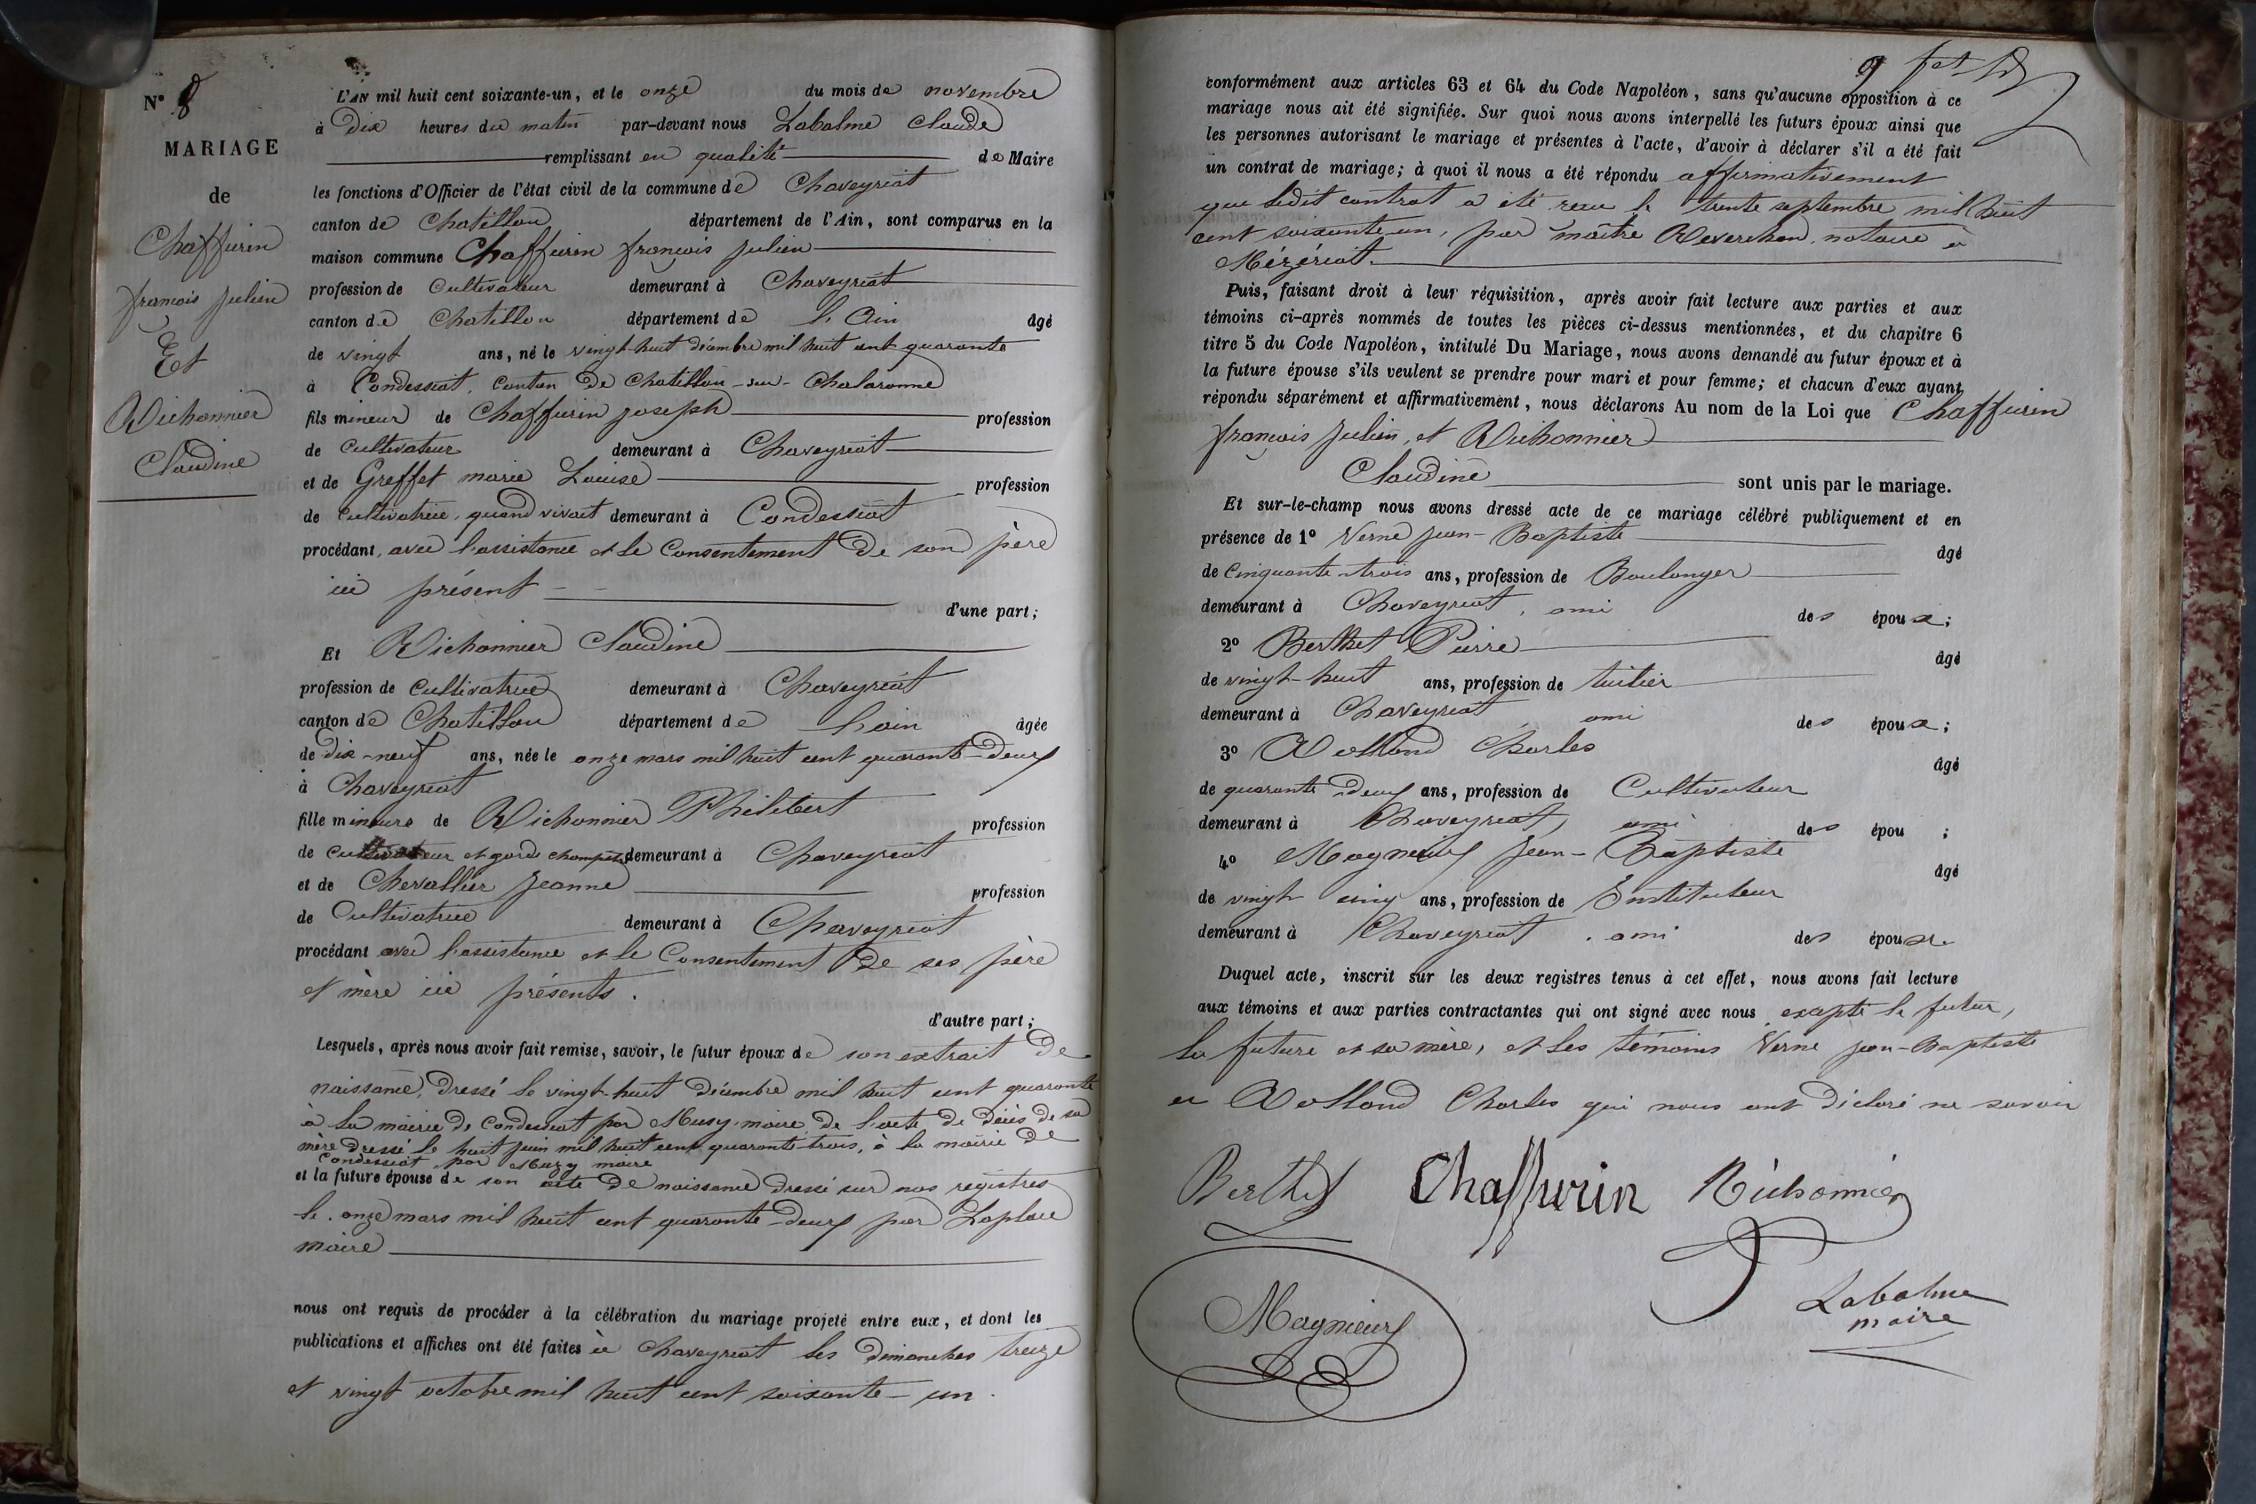 N° 8
MARIAGE
de
Chaffurin
françois Julien
Et
Richonnier
Claudine
L'AN mil huit cent soixante-un, et le onze du mois de novembre
à Dix heures du matin par-devant nous Labalme Claude
remplissant en qualité de Maire
les fonctions d'Officier de l'état civil de la commune de Chaveyriat
canton de Chatillon département de l'Ain, sont comparus en la
maison commune Chaffurin françois Julien
profession de Cultivateur demeurant à Chaveyriat
canton de Chatillon département de l'Ain âgé
de vingt ans, né le vingt-huit décembre mil huit cent quarante
à Condessiat, canton de Chatillon-sur-Chalaronne
fils mineur de Chaffurin joseph profession
de Cultivateur demeurant à Chaveyriat
et de Greffet marie Louise profession
de Cultivatrice, quand vivait demeurant à Condessiat
procédant, avec l'assistance et le Consentement de son père
ici présent
d'une part;
Et Richonnier Claudine
profession de Cultivatrice demeurant à Chaveyriat
canton de Chatillon département de l'ain âgée
de Dix-neuf ans, née le onze mars mil huit cent quarante-Deux
à Chaveyriat
fille mineure de Richonnier Philibert profession
de Cultivateur et garde champêtre demeurant à Chaveyriat
et de Chevallier Jeanne profession
de Cultivatrice demeurant à Chaveyriat
procédant avec l'assistance et le Consentement De ses père
et mère ici présents.
d'autre part;
Lesquels, après nous avoir fait remise, savoir, le futur époux de son extrait De
naissance, Dressé le vingt-huit Décembre mil huit cent quarante
à la mairie de Condessiat par Muzy, maire, de l'acte de Décès de sa
mère Dressé le huit juin mil huit cent quarante-trois, à la mairie De
Condessiat, par Muzy maire
et la future épouse de son acte De naissance dressé sur nos registres
le onze mars mil huit cent quarante-Deux par Laplace
maire
nous ont requis de procéder à la célébration du mariage projeté entre eux, et dont les
publications et affiches ont été faites à Chaveyriat les Dimanches treize
et vingt octobre mil huit cent soixante-un.
conformément aux articles 63 et 64 du Code Napoléon, sans qu'aucune opposition à ce
mariage nous ait été signifiée. Sur quoi nous avons interpellé les futurs époux ainsi que
les personnes autorisant le mariage et présentes à l'acte, d'avoir à déclarer s'il a été fait
un contrat de mariage; à quoi il nous a été répondu affirmativement
que ledit contrat a été reçu le trente septembre mil huit
cent soixante-un, par maître Reverchon, notaire à
Mézériat.
Puis, faisant droit à leur réquisition, après avoir fait lecture aux parties et aux
témoins ci-après nommés de toutes les pièces ci-dessus mentionnées, et du chapitre 6
titre 5 du Code Napoléon, intitulé Du Mariage, nous avons demandé au futur époux et à
la future épouse s'ils veulent se prendre pour mari et pour femme; et chacun d'eux ayant
répondu séparément et affirmativement, nous déclarons Au nom de la Loi que Chaffurin
françois Julien, et Richonnier
Claudine sont unis par le mariage.
Et sur-le-champ nous avons dressé acte de ce mariage célébré publiquement et en
présence de 1° Verne Jean-Baptiste âgé
de Cinquante-trois ans, profession de Boulanger
demeurant à Chaveyriat, ami des époux;
2° Berthet Pierre âgé
de vingt-huit ans, profession de tuilier
demeurant à Chaveyriat ami des époux;
3° Rolland Charles âgé
de quarante Deux ans, profession de Cultivateur
demeurant à Chaveyriat, ami des épou ;
4° Magnieux Jean-Baptiste âgé
de vingt cinq ans, profession de Instituteur
demeurant à Chaveyriat. ami des époux.
Duquel acte, inscrit sur les deux registres tenus à cet effet, nous avons fait lecture
aux témoins et aux parties contractantes qui ont signé avec nous, excepté le futur,
la future et sa mère, et les témoins Verne Jean-Baptiste
et Rolland Charles qui nous ont Déclaré ne savoir
Berthet Chaffurin Richonnier
Magnieux
Labalme
maire